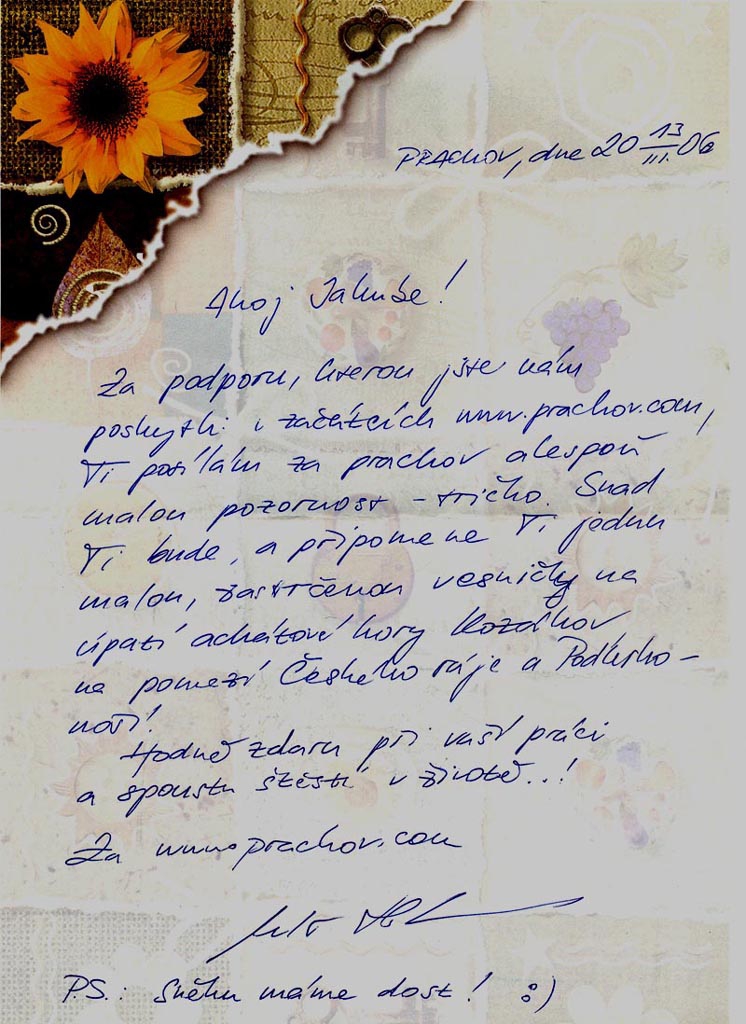 PRACHOV, dne 20 13/III. 06
Ahoj Jakube!
Za podporu, kterou jste nám
poskytli v začátcích www.prachov.com,
Ti posílám za prachov alespoň
malou pozornost - tričko. Snad
Ti bude, a připomene Ti jednu
malou, zastrčenou vesničku na
úpatí achátové hory Kozákov
na pomezí Českého ráje a Podkrko-
noší!
Hodně zdaru při vaší práci
a spoustu štěstí v životě..!
Za www.prachov.com
P.S.: Sněhu máme dost! :)